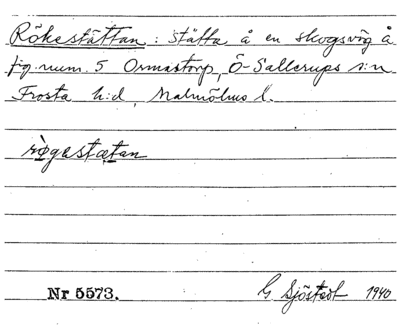 Rökestättan: stätta å en skogsväg å
fig. num. 5 Ormastorp, Ö-Sallerups s:n
Frosta h:d, Malmöhus l.
røgestætan
Nr 5573.
G Sjöstedt 1940